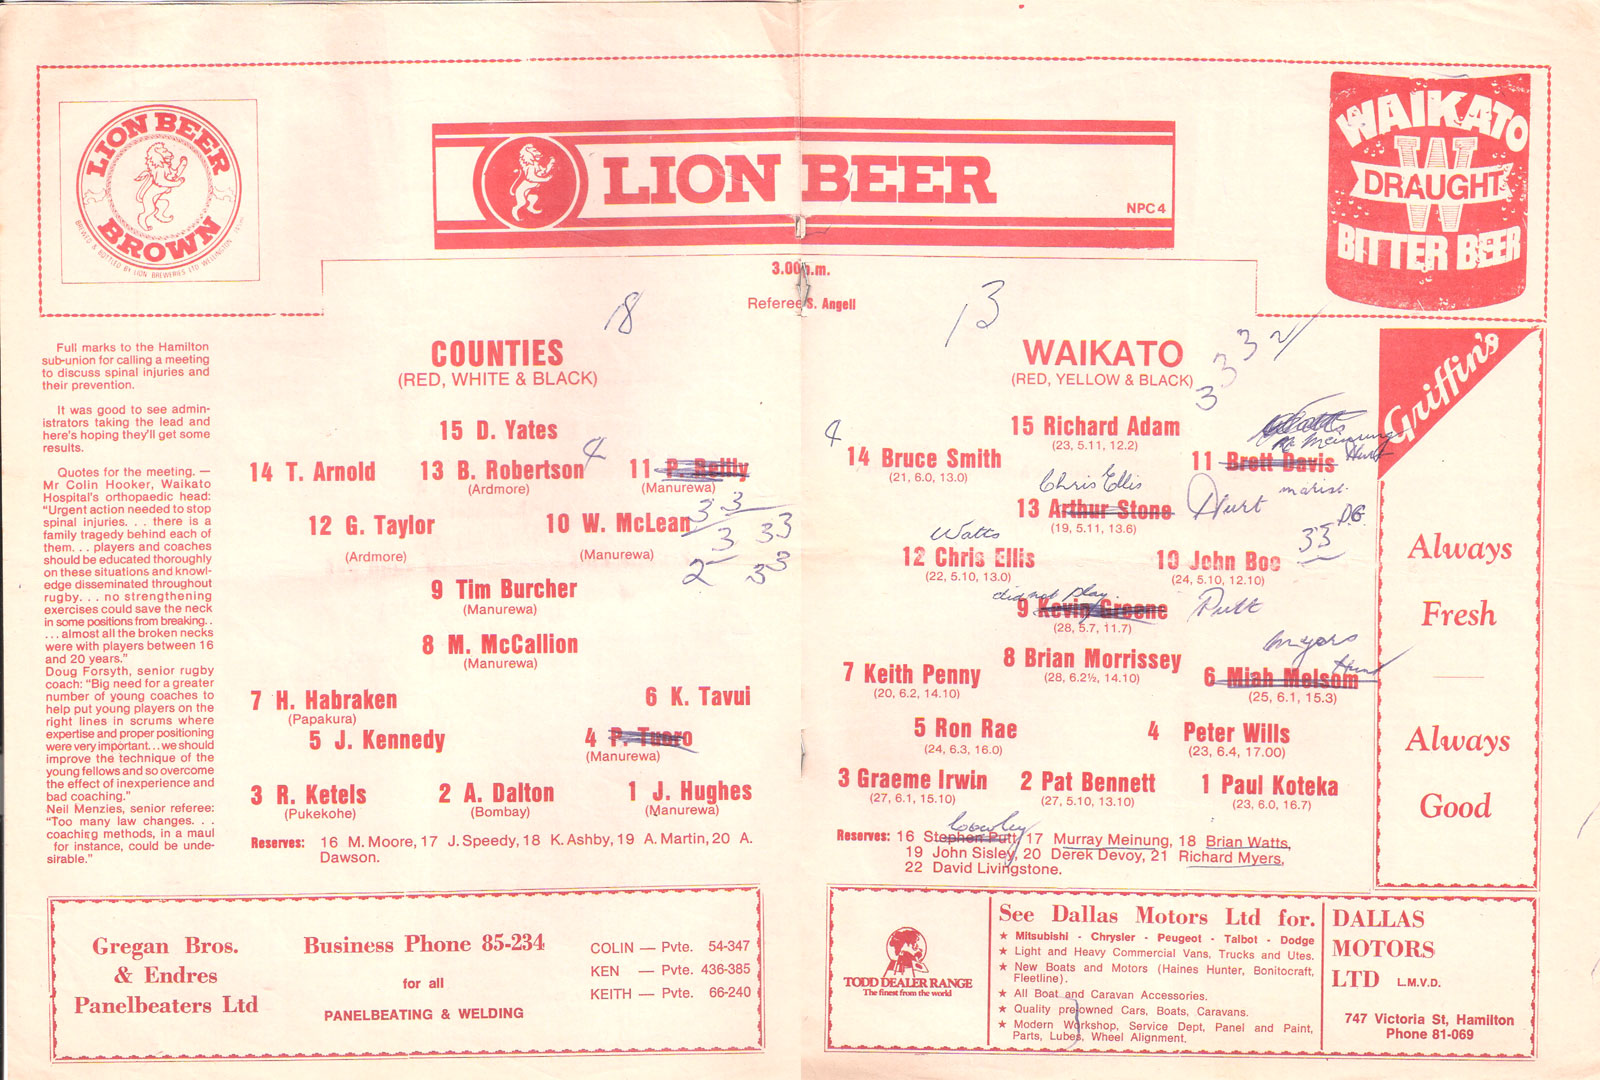 LION BEER
BROWN
BREWED & BOTTLED BY LION BREWERIES LTD WELLINGTON
LION BEER
NPC 4
WAIKATO
DRAUGHT
BITTER BEER
3.00 p.m.
Referee S. Angell
18
13
Full marks to the Hamilton
sub-union for calling a meeting
to discuss spinal injuries and
their prevention.
It was good to see admin-
istrators taking the lead and
here's hoping they'll get some
results.
Quotes for the meeting. —
Mr Colin Hooker, Waikato
Hospital's orthopaedic head:
"Urgent action needed to stop
spinal injuries. . . there is a
family tragedy behind each of
them. . . players and coaches
should be educated thoroughly
on these situations and knowl-
edge disseminated throughout
rugby. . . no strengthening
exercises could save the neck
in some positions from breaking. .
. . . almost all the broken necks
were with players between 16
and 20 years."
Doug Forsyth, senior rugby
coach: "Big need for a greater
number of young coaches to
help put young players on the
right lines in scrums where
expertise and proper positioning
were very important. . . we should
improve the technique of the
young fellows and so overcome
the effect of inexperience and
bad coaching."
Neil Menzies, senior referee:
"Too many law changes. . .
coaching methods, in a maul
for instance, could be unde-
sirable."
COUNTIES
(RED, WHITE & BLACK)
15 D. Yates
14 T. Arnold 13 B. Robertson 4 11 P. Reilly
(Ardmore) (Manurewa)
12 G. Taylor 10 W. McLean 3 3
(Ardmore) (Manurewa) 3 33
2 33
9 Tim Burcher
(Manurewa)
8 M. McCallion
(Manurewa)
7 H. Habraken 6 K. Tavui
(Papakura)
5 J. Kennedy 4 P. Tuoro
(Manurewa)
3 R. Ketels 2 A. Dalton 1 J. Hughes
(Pukekohe) (Bombay) (Manurewa)
Reserves: 16 M. Moore, 17 J. Speedy, 18 K. Ashby, 19 A. Martin, 20 A.
Dawson.
WAIKATO
(RED, YELLOW & BLACK)
3 3 3 2
15 Richard Adam
(23, 5.11, 12.2)
Watts
M. Meinung
4 14 Bruce Smith 11 Brett Davis Hurt
(21, 6.0, 13.0)
Chris Ellis marist.
13 Arthur Stone Hurt
(19, 5.11, 13.6)
Watts 33 DG
12 Chris Ellis 10 John Boe
(22, 5.10, 13.0) (24, 5.10, 12.10)
did not play.
9 Kevin Greene Putt
(28, 5.7, 11.7)
myers
8 Brian Morrissey Hurt
7 Keith Penny (28, 6.2½, 14.10) 6 Miah Melsom
(20, 6.2, 14.10) (25, 6.1, 15.3)
5 Ron Rae 4 Peter Wills
(24, 6.3, 16.0) (23, 6.4, 17.00)
3 Graeme Irwin 2 Pat Bennett 1 Paul Koteka
(27, 6.1, 15.10) (27, 5.10, 13.10) (23, 6.0, 16.7)
Cowley
Reserves: 16 Stephen Putt, 17 Murray Meinung, 18 Brian Watts,
19 John Sisley, 20 Derek Devoy, 21 Richard Myers,
22 David Livingstone.
Griffin's
Always
Fresh
Always
Good
Gregan Bros.
& Endres
Panelbeaters Ltd
Business Phone 85-234
for all
PANELBEATING & WELDING
COLIN — Pvte. 54-347
KEN — Pvte. 436-385
KEITH — Pvte. 66-240
TODD DEALER RANGE
The finest from the world
See Dallas Motors Ltd for.
★ Mitsubishi - Chrysler - Peugeot - Talbot - Dodge
★ Light and Heavy Commercial Vans, Trucks and Utes.
★ New Boats and Motors (Haines Hunter, Bonitocraft,
Fleetline).
★ All Boat and Caravan Accessories.
★ Quality preowned Cars, Boats, Caravans.
★ Modern Workshop, Service Dept, Panel and Paint,
Parts, Lubes, Wheel Alignment.
DALLAS
MOTORS
LTD L.M.V.D.
747 Victoria St, Hamilton
Phone 81-069